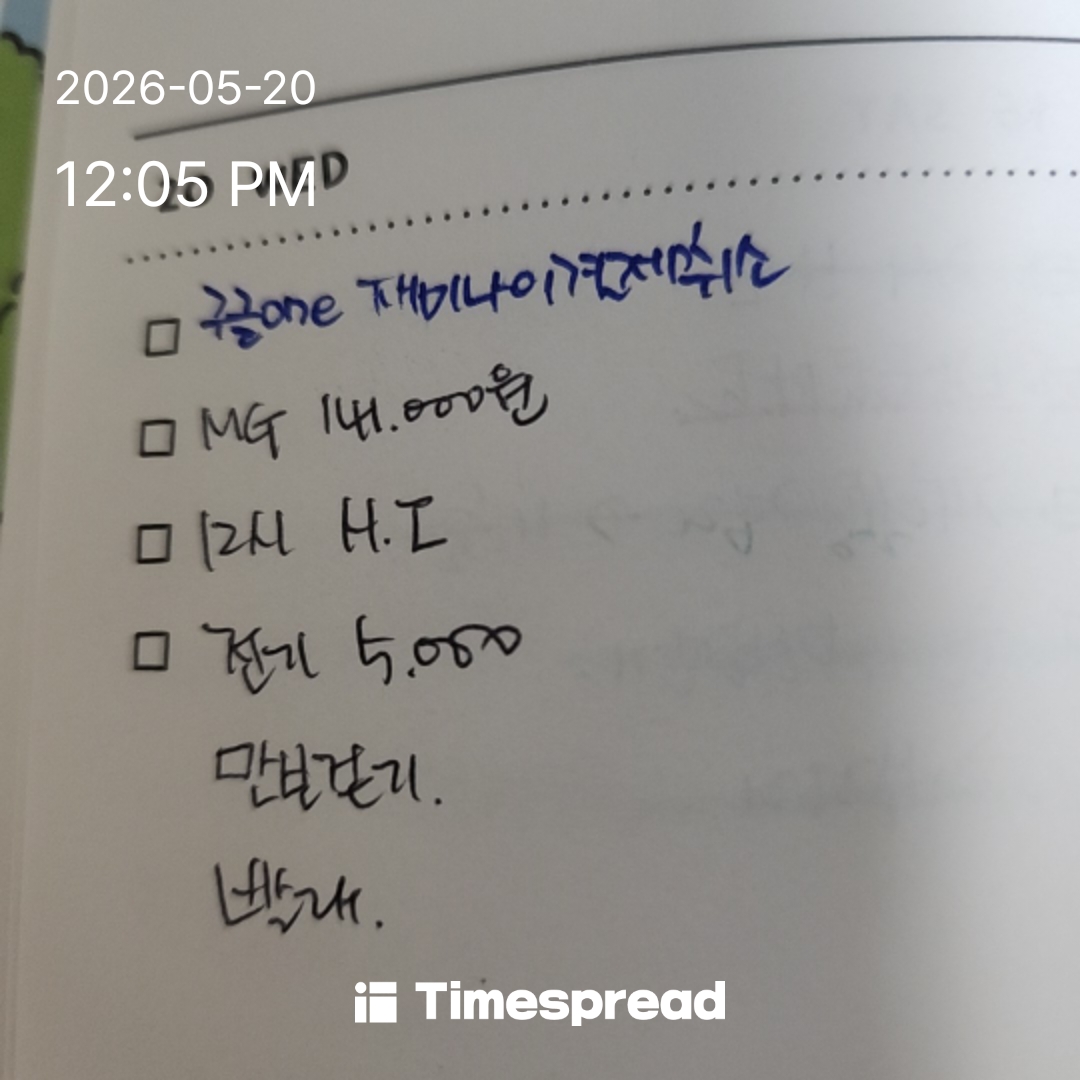 2026-05-20
12:05 PM
20 WED
구글one 재미나이결제취소
MG 141.000원
12시 H.I
전기 5.000
만보걷기.
빨래.
Timespread